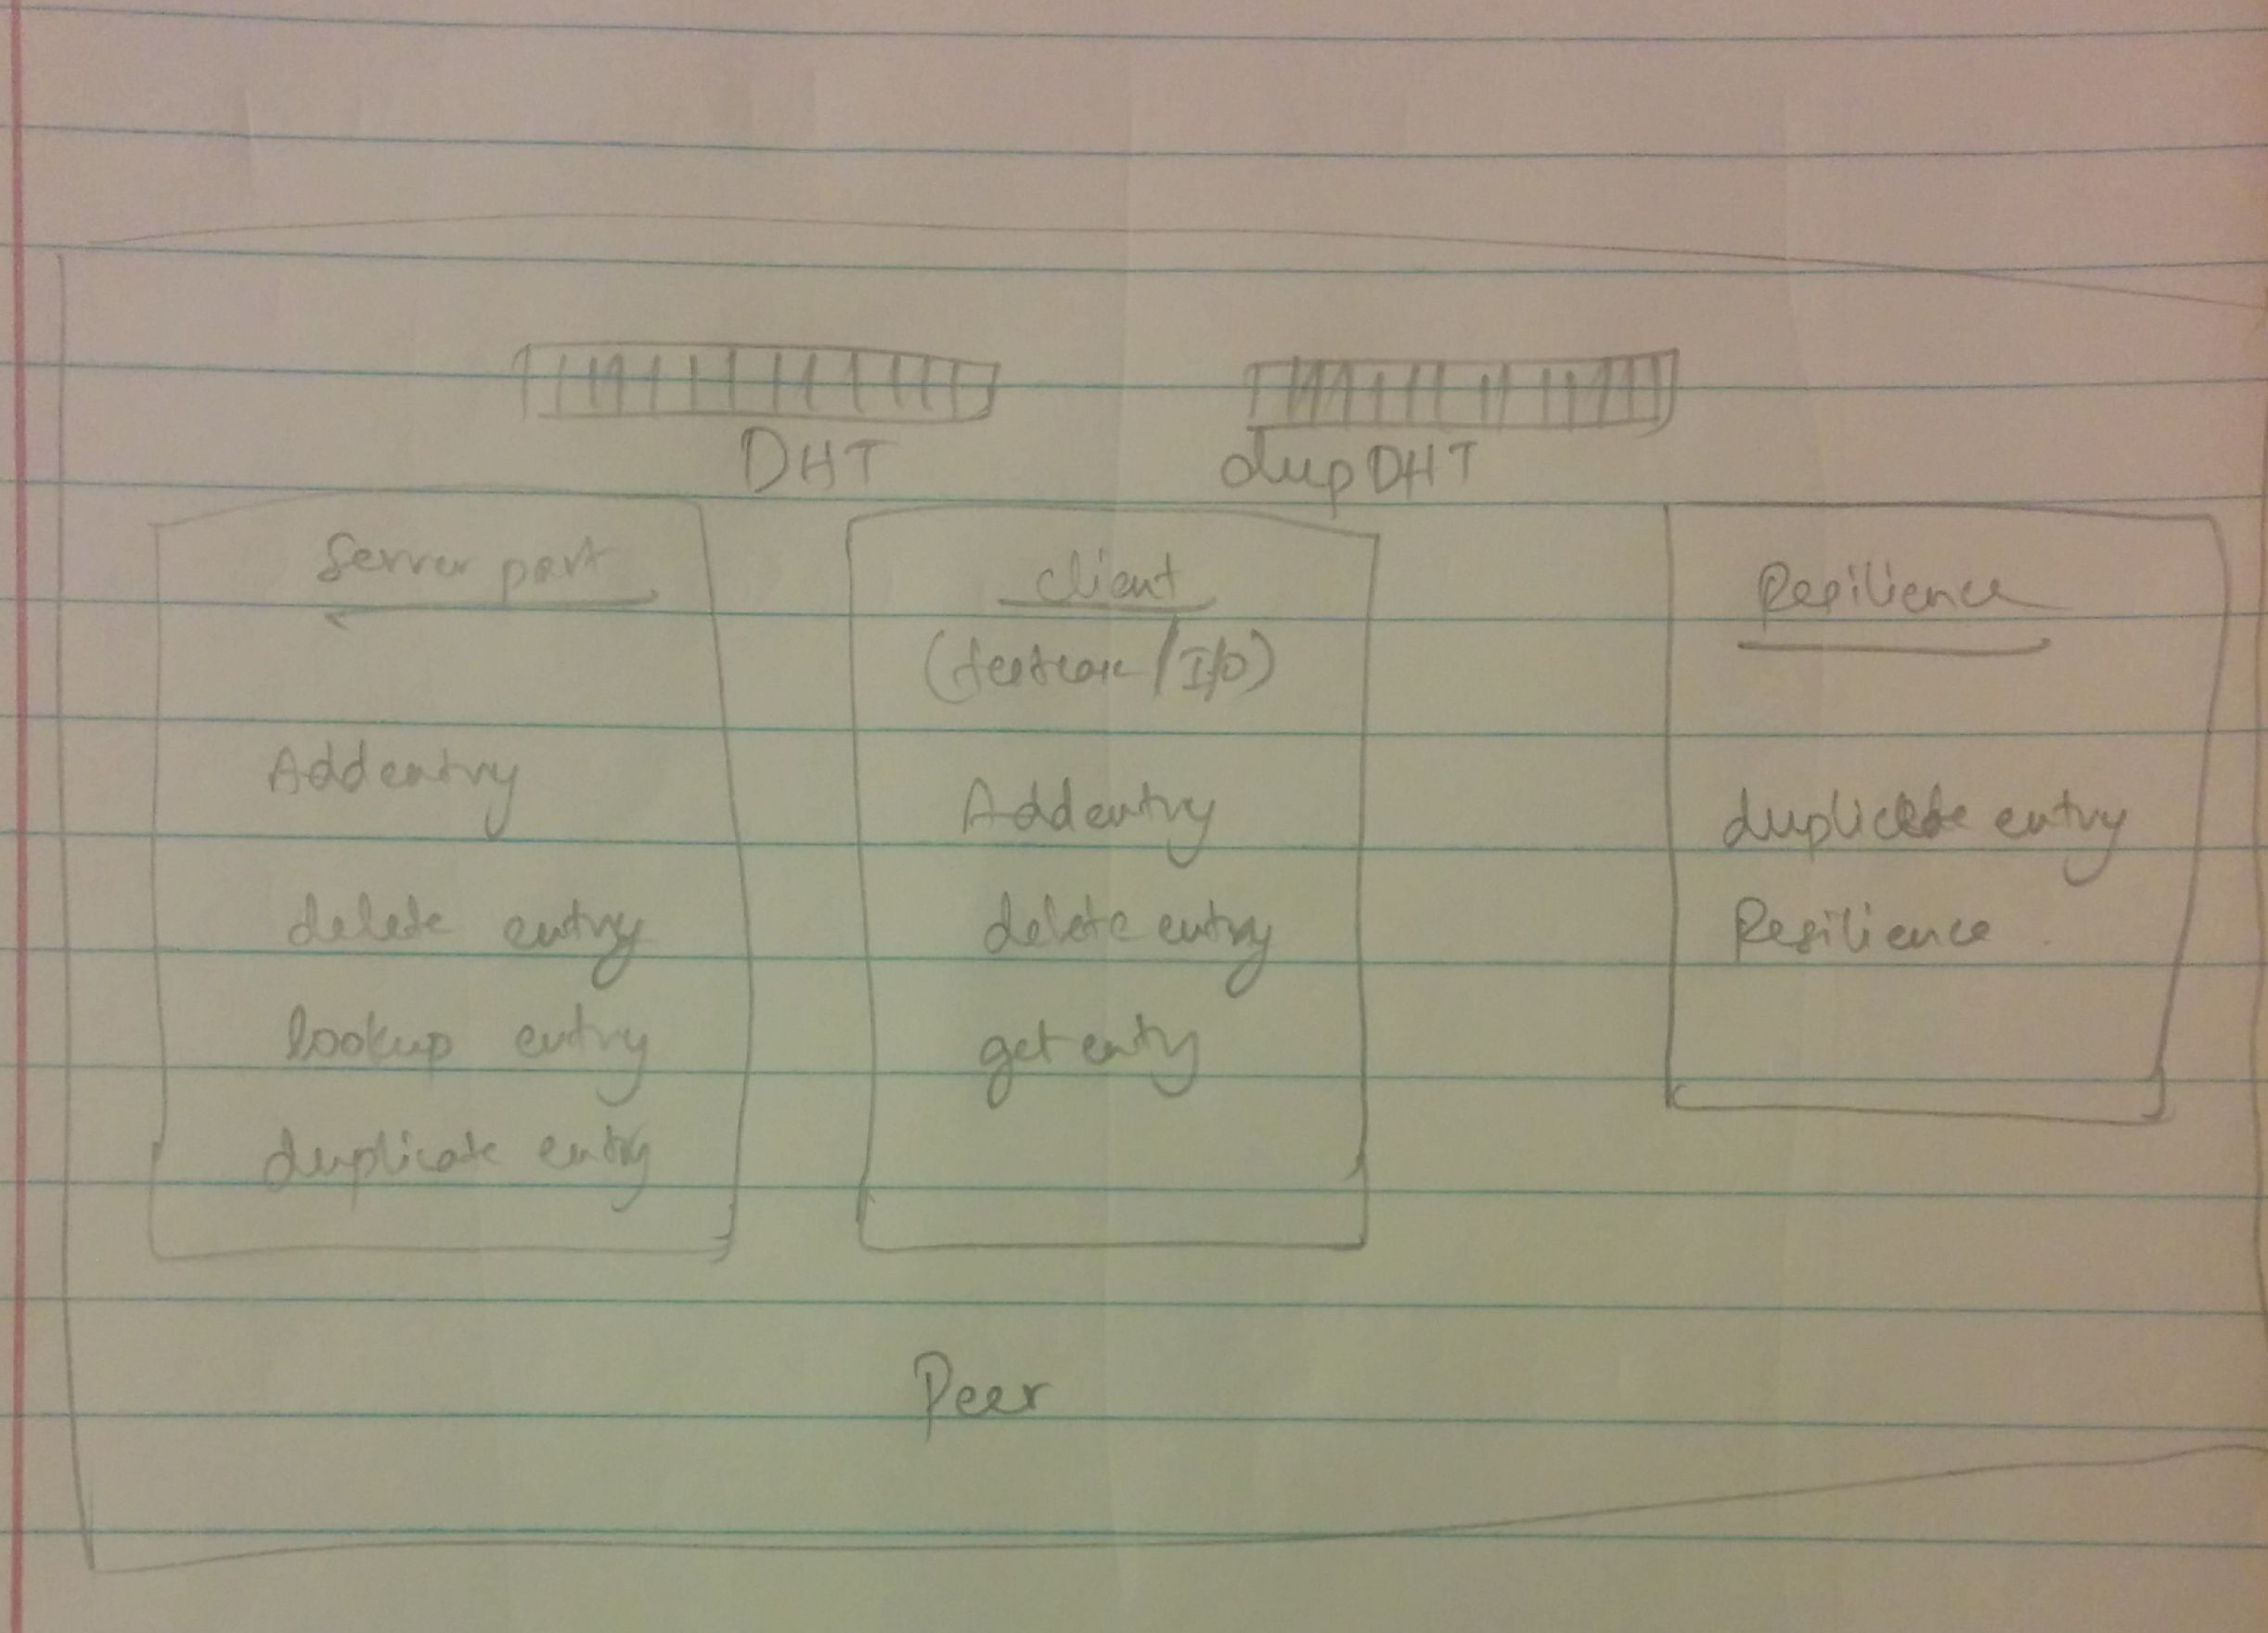 DHT
dupDHT
Server part
Add entry
delete entry
lookup entry
duplicate entry
client
(testcase/I/O)
Add entry
delete entry
get enty
Resilience
duplicate entry
Resilience
Peer